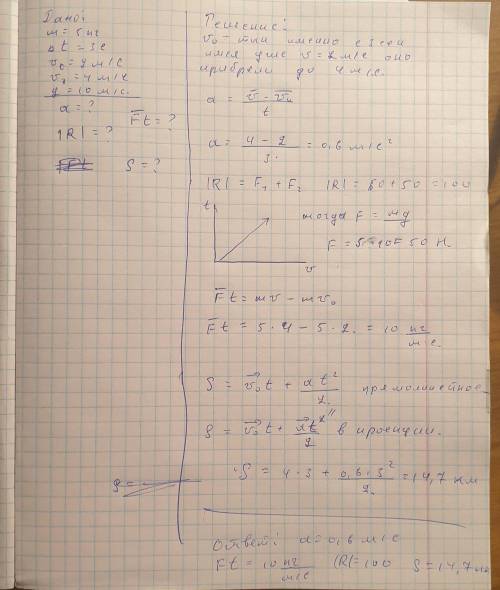 Дано:
m = 5 кг
Δt = 3с
v₀ = 2 м/с
v₁ = 4 м/с
g = 10 м/с.
a = ?
F̄t = ?
|R| = ?
S = ?
Решение:
v = 2 м/с оно
до 4 м/с.
a = (v̄ - v̄₀) / t
a = (4 - 2) / 3. = 0,6 м/с²
|R| = F₁ + F₂ |R| = 50 + 50 = 100
t
тогда F = mg
F = 5·10 = 50 Н.
v
F̄t = mv - mv₀
F̄t = 5·4 - 5·2. = 10 кг / м/с.
S = v⃗₀t + at² / 2. прямолинейное
S = v⃗₀t + a⃗t² / 2 в проекции.
S = 4·3 + 0,6·3² / 2. = 14,7 км
S =
Ответ: a = 0,6 м/с
Ft = 10 кг / м/с |R| = 100 S = 14,7 км